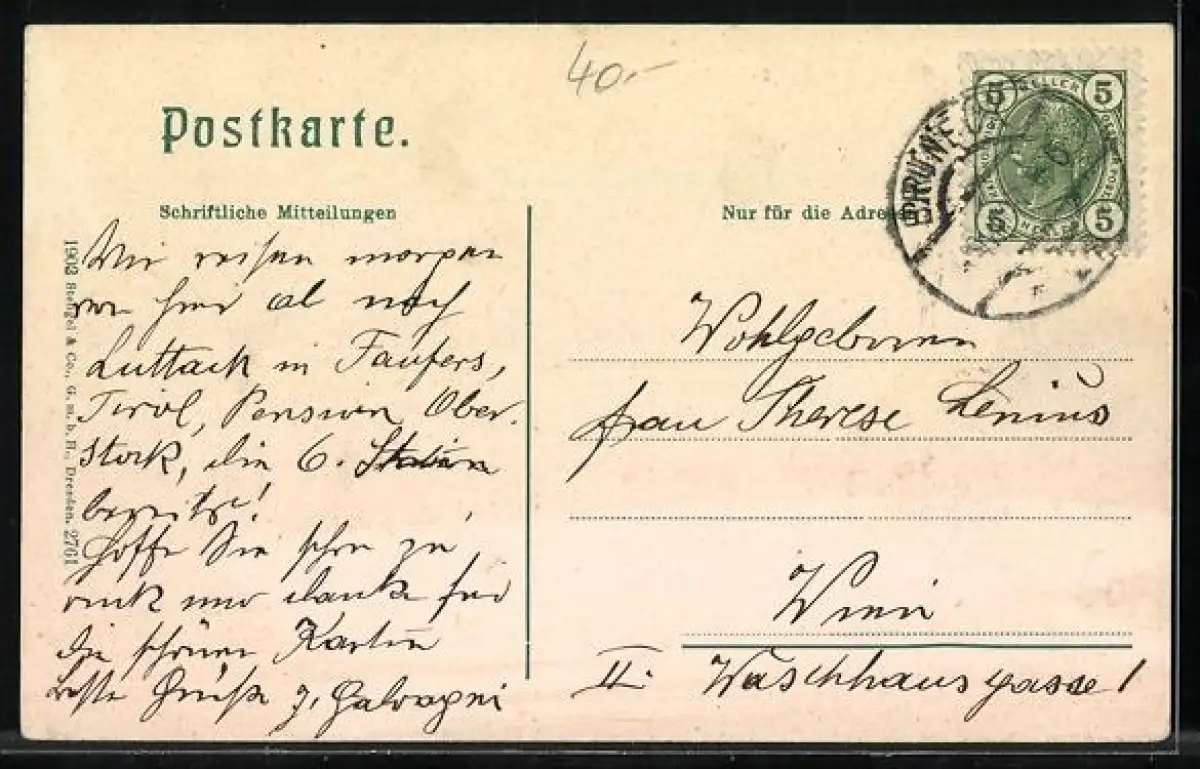 40.-
Postkarte.
Schriftliche Mitteilungen
Nur für die Adresse
5 HELLER 5
5 HELLER 5
BRUNECK
1903 Stengel & Co., G. m. b. H., Dresden. 2761
Wir reisen morgen
von hier ab nach
Luttach in Taufers,
Tirol, Pension Ober-
stock, die 6. Station
bereits!
Hoffe Sie schon zu
rück und danke für
die schönen Karten
beste Grüße J. Galvagni
Wohlgeboren
Frau Therese Lenius
Wien
II. Waschhausgasse 1